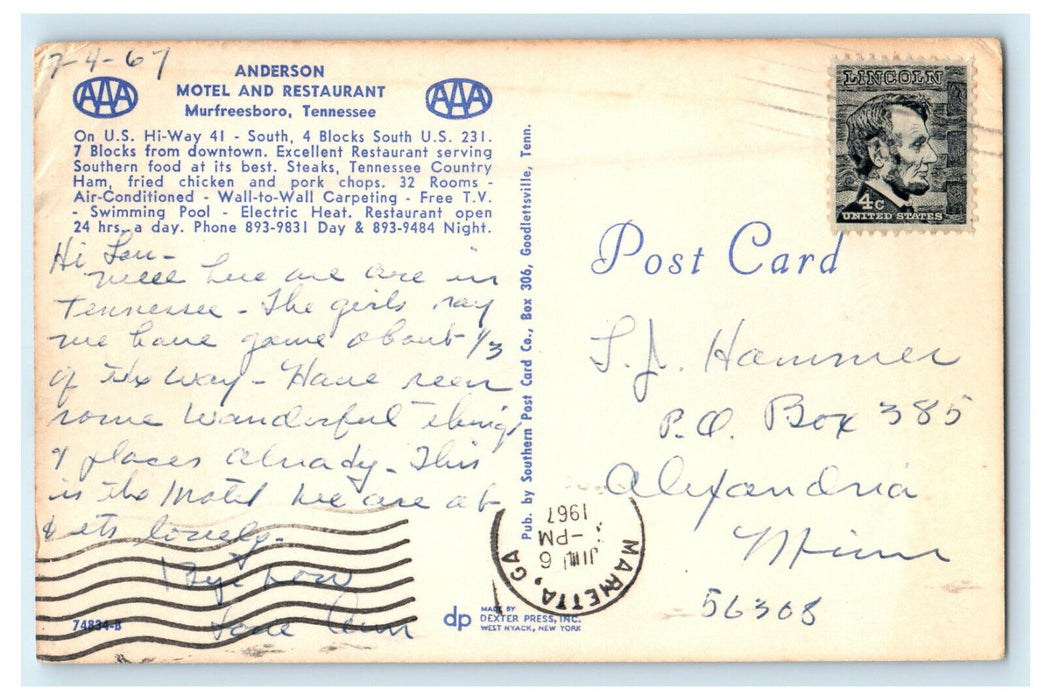 7-4-67
ANDERSON
MOTEL AND RESTAURANT
Murfreesboro, Tennessee
AAA
AAA
On U.S. Hi-Way 41 - South, 4 Blocks South U.S. 231.
7 Blocks from downtown. Excellent Restaurant serving
Southern food at its best. Steaks, Tennessee Country
Ham, fried chicken and pork chops. 32 Rooms -
Air-Conditioned - Wall-to-Wall Carpeting - Free T.V.
- Swimming Pool - Electric Heat. Restaurant open
24 hrs. a day. Phone 893-9831 Day & 893-9484 Night.
Hi
Well here we are in
Tennessee - The girls say
we have gone about 1/3
of the way - Have seen
some wanderful things
& places already - This
is the Motel we are at
& its lovely -
Bye now
Ann
74834-B
Pub. by Southern Post Card Co., Box 306, Goodlettsville, Tenn.
dp
MADE BY
DEXTER PRESS, INC.
WEST NYACK, NEW YORK
LINCOLN
4c
UNITED STATES
Post Card
MARIETTA, GA
6
-PM
1967
Hammer
P.O. Box 385
Alexandria
Minn
56308